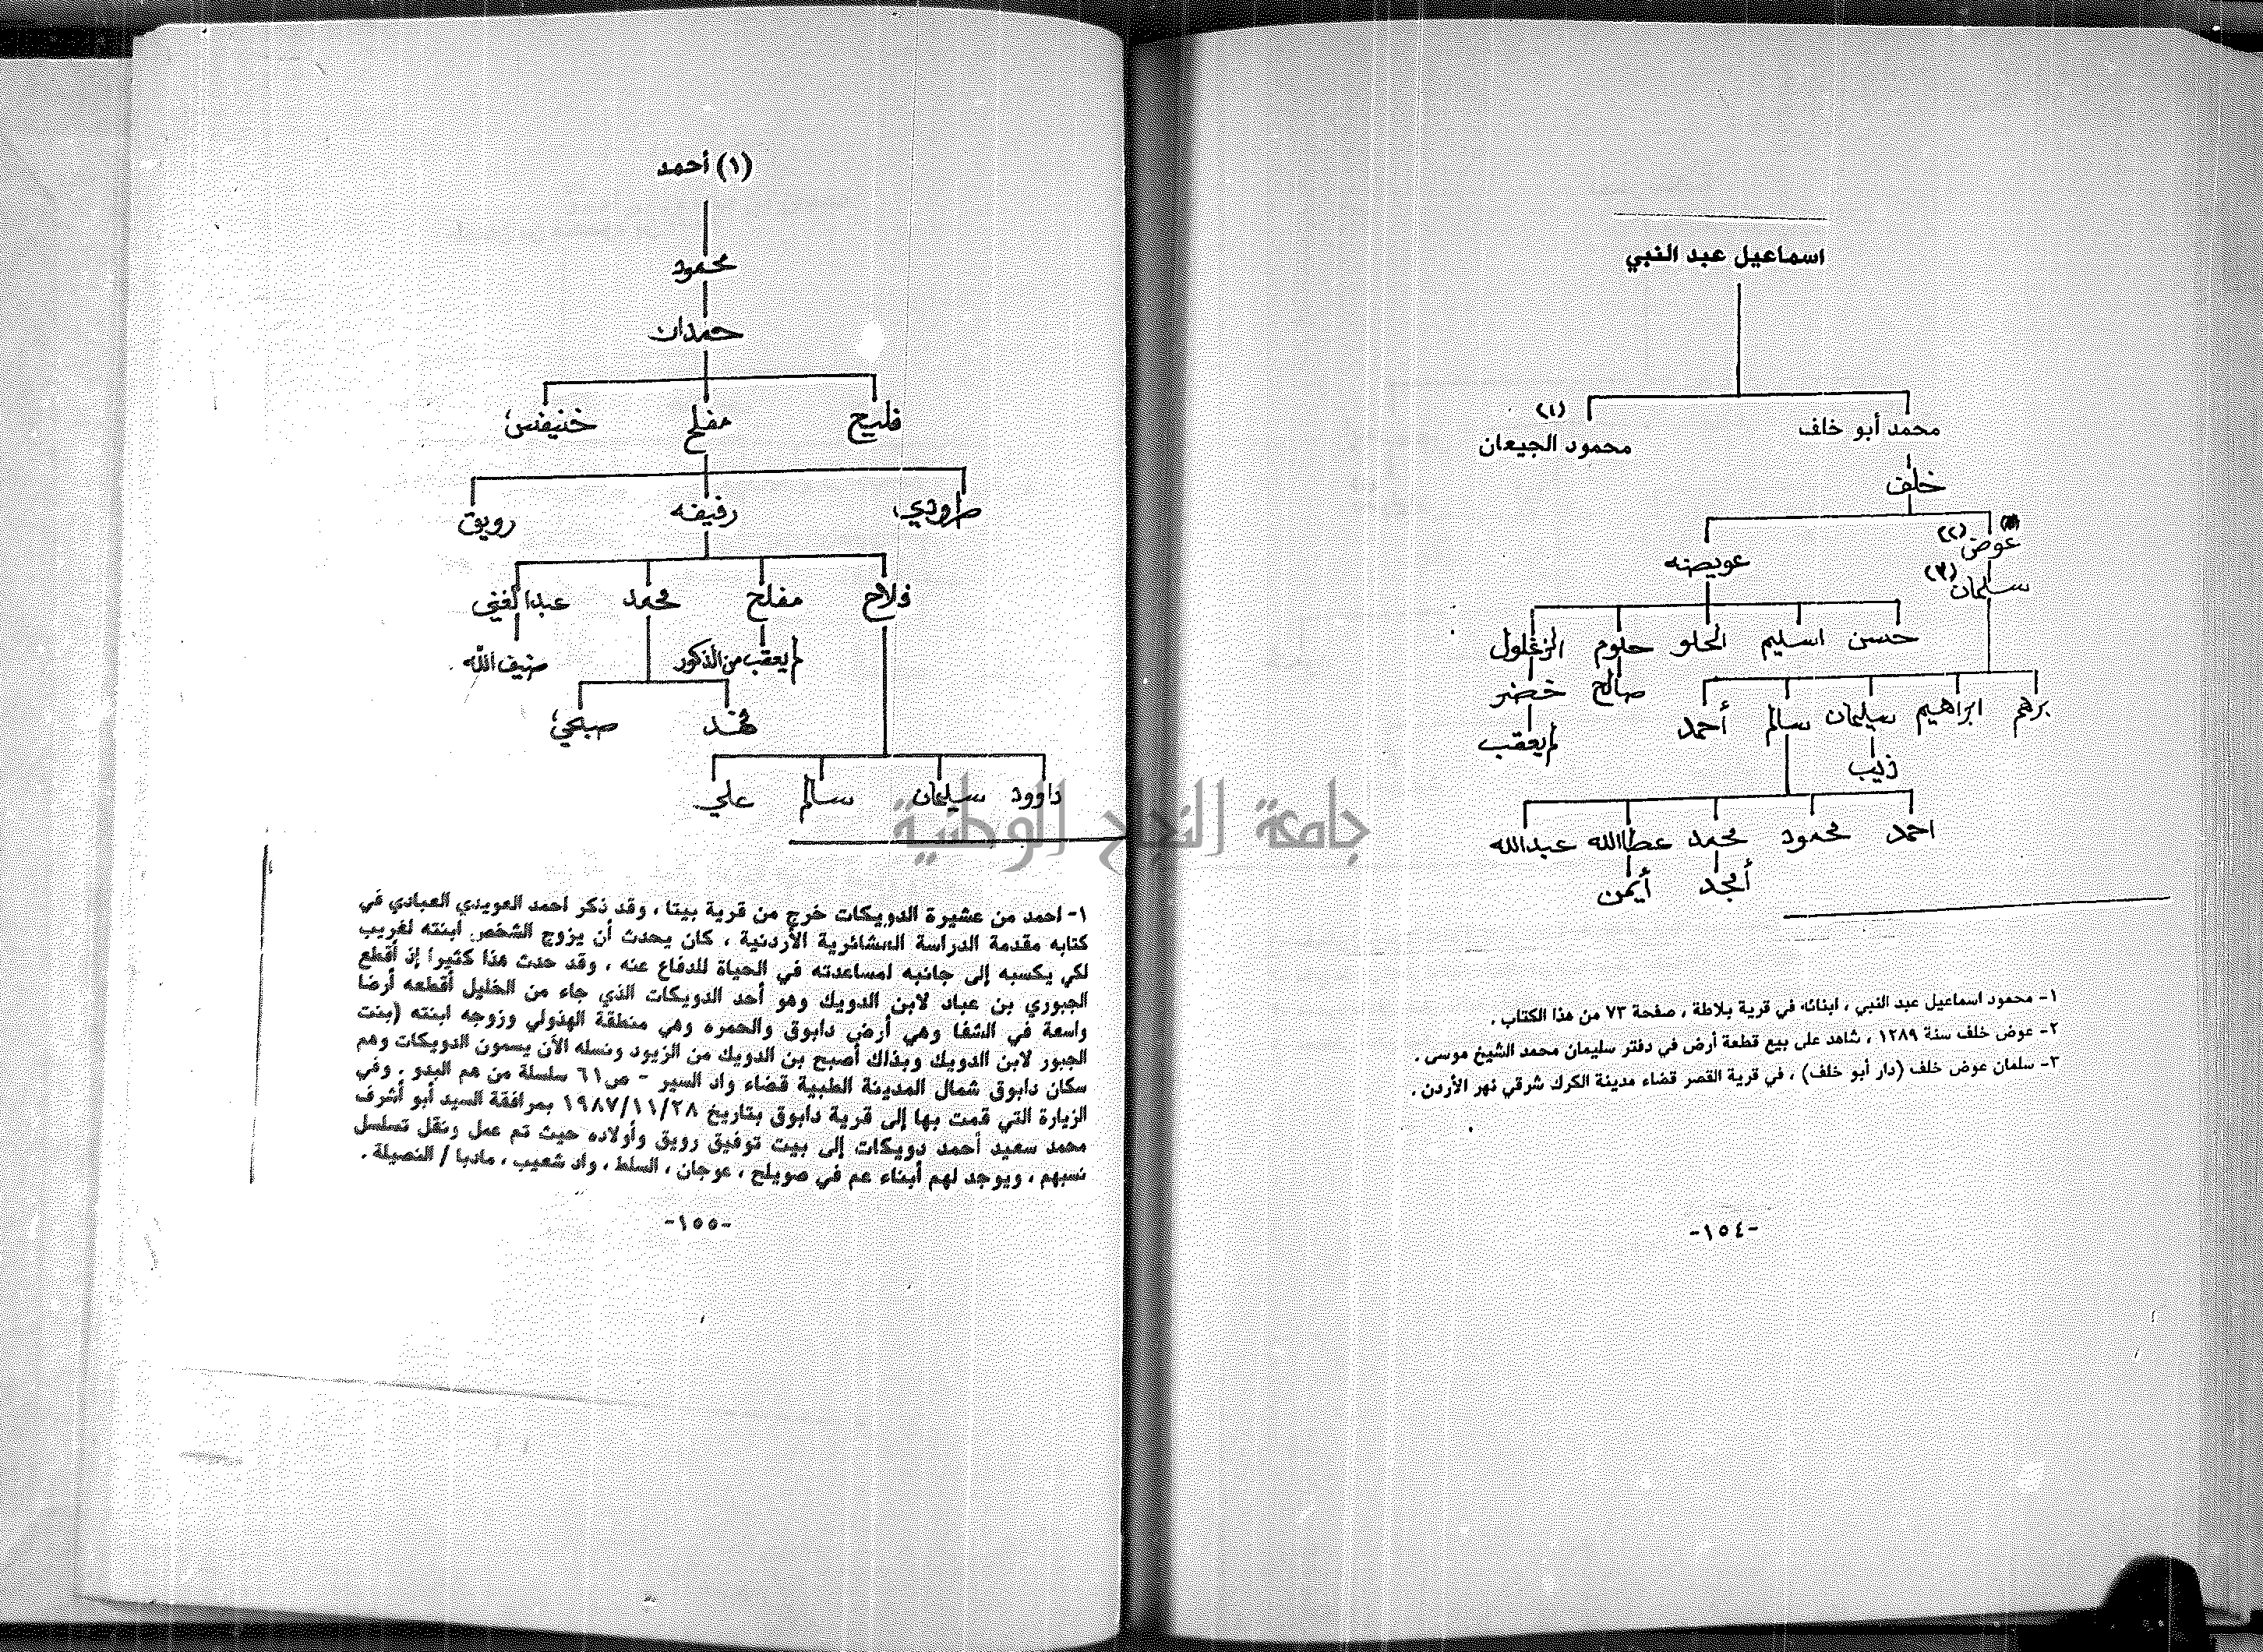 اسماعيل عبد النبي
محمد أبو خلف
(١)
محمود الجيعان
خلف
عوض (٢)
عويضه
سلمان (٣)
حسن اسليم الحلو حلوم الزغلول
صالح خضر
لم يعقب
برهم ابراهيم سليمان سالم أحمد
ذيب
احمد محمود محمد عطاالله عبدالله
أمجد أيمن
١- محمود اسماعيل عبد النبي ، ابنائه في قرية بلاطة ، صفحة ٧٣ من هذا الكتاب .
٢- عوض خلف سنة ١٢٨٩ ، شاهد على بيع قطعة أرض في دفتر سليمان محمد الشيخ موسى .
٣- سلمان عوض خلف (دار أبو خلف) ، في قرية القصر قضاء مدينة الكرك شرقي نهر الأردن .
-١٥٤-
(١) أحمد
محمود
حمدان
فليح مفلح خنيفس
رفيفه رويق
فلاح مفلح محمد عبدالغني
لم يعقب من الذكور ضيف الله
فهد صبحي
داوود سليمان سالم علي
جامعة النجاح الوطنية
١- احمد من عشيرة الدويكات خرج من قرية بيتا ، وقد ذكر احمد العويدي العبادي في
كتابه مقدمة الدراسة العشائرية الأردنية ، كان يحدث أن يزوج الشخص ابنته لغريب
لكي يكسبه إلى جانبه لمساعدته في الحياة للدفاع عنه ، وقد حدث هذا كثيرا إذ أقطع
الجبوري بن عباد لابن الدويك وهو أحد الدويكات الذي جاء من الخليل أقطعه أرضا
واسعة في الشفا وهي أرض دابوق والحمره وهي منطقة الهذولي وزوجه ابنته (بنت
الجبور لابن الدويك وبذلك أصبح بن الدويك من الزيود ونسله الأن يسمون الدويكات وهم
سكان دابوق شمال المدينة الطبية قضاء واد السير - ص٦١ سلسلة من هم البدو . وفي
الزيارة التي قمت بها إلى قرية دابوق بتاريخ ١٩٨٧/١١/٢٨ بمرافقة السيد أبو أشرف
محمد سعيد أحمد دويكات إلى بيت توفيق رويق وأولاده حيث تم عمل ونقل تسلسل
نسبهم ، ويوجد لهم أبناء عم في صويلح ، عوجان ، السلط ، واد شعيب ، مادبا / النصيلة .
-١٥٥-